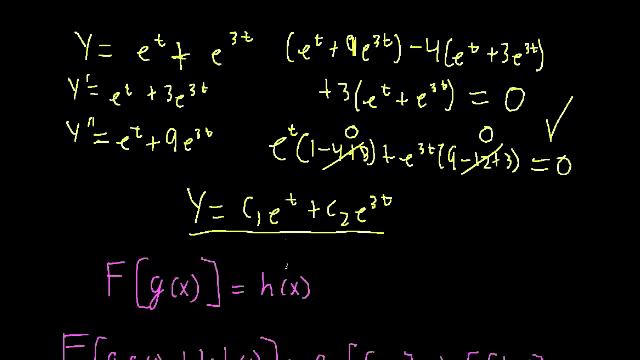 Y = e^t + e^{3t} (e^t + 9e^{3t}) - 4(e^t + 3e^{3t})
Y' = e^t + 3e^{3t} + 3(e^t + e^{3t}) = 0 ✓
Y'' = e^t + 9e^{3t} e^t(1-4+3) + e^{3t}(9-12+3) = 0
0 0
Y = C_1 e^t + C_2 e^{3t}
F[g(x)] = h(x)